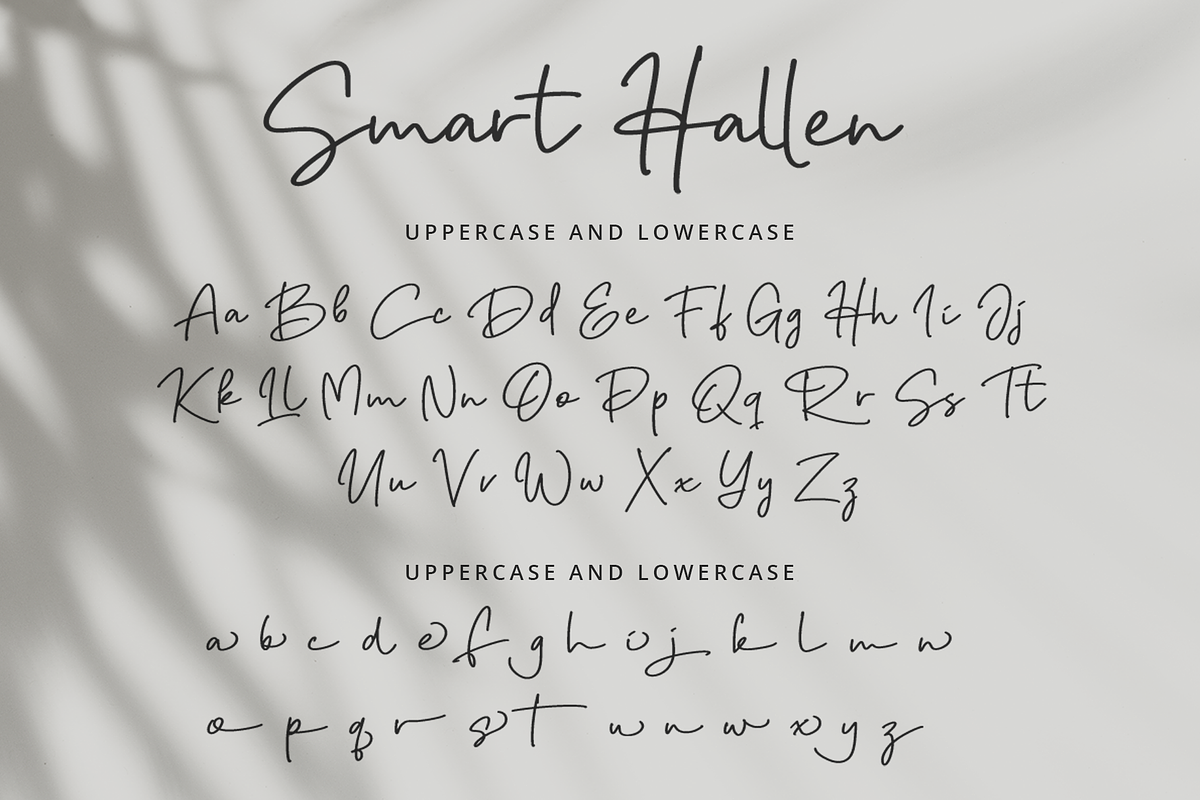 Smart Hallen
UPPERCASE AND LOWERCASE
Aa Bb Cc Dd Ee Ff Gg Hh Ii Jj
Kk Ll Mm Nn Oo Pp Qq Rr Ss Tt
Uu Vv Ww Xx Yy Zz
UPPERCASE AND LOWERCASE
a b c d e f g h i j k l m n
o p q r s t u v w x y z